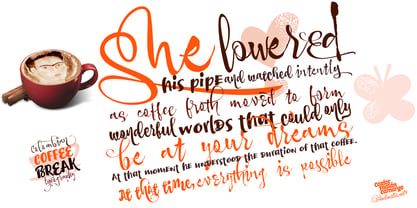 She lowered
his pipe and watched intently
as coffee froth moved to form
wonderful worlds that could only
be at your dreams
At that moment he understood the duration of that coffee.
At that time, everything is possible
Colombian
COFFEE
BREAK
typography